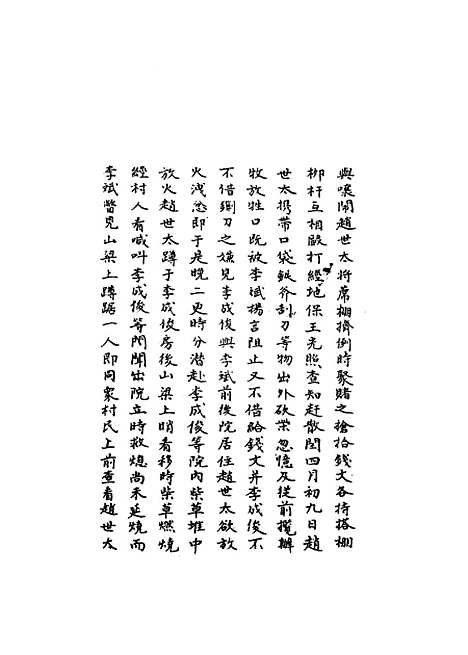 與嚷鬧趙世太將席棚擠倒時聚賭之搶拾錢文各持搭棚
柳杆互相毆打經地保王光照查知赶散閏四月初九日趙
世太携帶口袋鉄斧刮刀等物出外砍柴忽憶及從前攬辦
牧放牲口既被李斌揚言阻止又不借給錢文并李成俊不
不借鍘刀之嫌見李成俊與李斌前後院居住趙世太欲放
火洩忿即于是晚二更時分潜赴李成俊等院內柴草堆中
放火趙世太蹲于李成俊房後山梁上哨看移時柴草燃燒
經村人看喊叫李成俊等門聞出院立時救熄尚未延燒而
李斌瞥見山梁上蹲踞一人即同衆村民上前查看趙世太